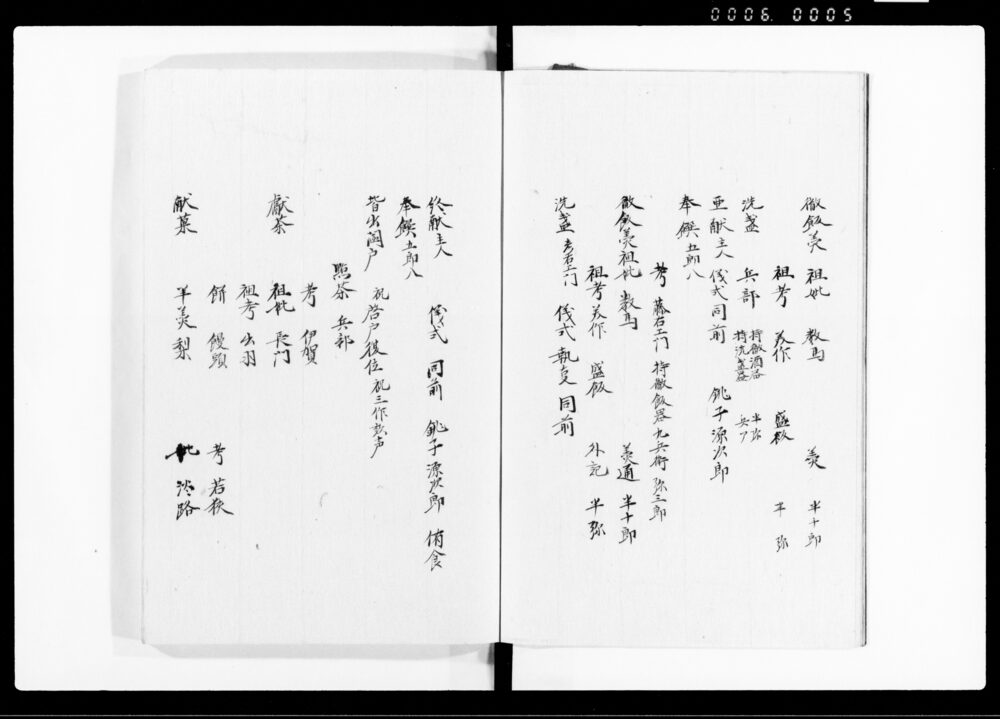 0006. 0005
徹飯羮 祖妣 数馬 羮 半十郎
祖考 美作 盛飯 半弥
洗盞 兵部 持徹酒器 半弥 持洗盞器 兵了
亜献主人 儀式同前 銚子源次郎
奉饌五郎八
考 藤右エ門 持徹飯器 九兵衛 弥三郎
徹飯羮祖妣 数馬 羮通 半十郎
祖考美作 盛飯 外記 半弥
洗盞 右エ門 儀式執事同前
終献主人 儀式 同前 銚子源次郎 侑食
奉饌五郎八
皆出闔戸 祝啓戸復位 祝三作咳声
點茶 兵部
考 伊賀
献茶 祖妣 長門
祖考 出羽
餅 饅頭 考 若狭
献菓 羊羮 梨 妣 淡路